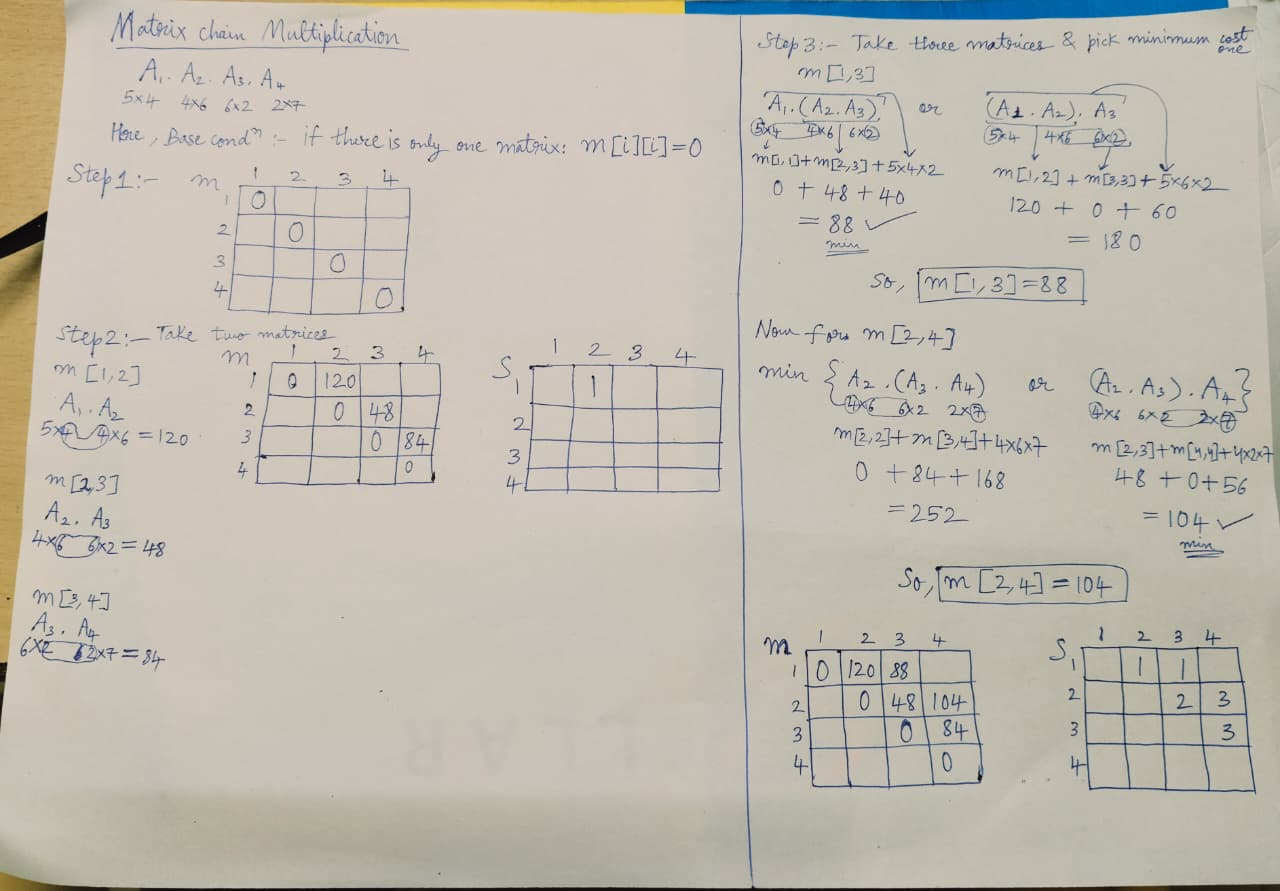 Matrix chain Multiplication
A₁. A₂. A₃. A₄
5×4 4×6 6×2 2×7
Here, Base condⁿ :- if there is only one matrix: m[i][i]=0
Step 1:-
m 1 2 3 4
1 0
2 0
3 0
4 0
Step 2:- Take two matrices
m[1,2]
A₁. A₂
5×4 4×6 = 120
m[2,3]
A₂. A₃
4×6 6×2 = 48
m[3,4]
A₃. A₄
6×2 2×7 = 84
m 1 2 3 4
1 0 120
2 0 48
3 0 84
4 0
S 1 2 3 4
1 1
2
3
4
Step 3:- Take three matrices & pick minimum cost one
m[1,3]
A₁.(A₂.A₃) or (A1.A₂). A₃
5×4 4×6 6×2 5×4 4×6 6×2
m[1,1]+m[2,3]+5×4×2 m[1,2]+m[3,3]+5×6×2
0 + 48 + 40 120 + 0 + 60
= 88 ✓ = 180
min
So, m[1,3]=88
Now for m[2,4]
min { A₂.(A₃.A₄) or (A₂.A₃).A₄}
4×6 6×2 2×7 4×6 6×2 2×7
m[2,2]+m[3,4]+4×6×7 m[2,3]+m[4,4]+4×2×7
0 + 84 + 168 48 + 0 + 56
= 252 = 104 ✓
min
So, m[2,4] = 104
m 1 2 3 4
1 0 120 88
2 0 48 104
3 0 84
4 0
S 1 2 3 4
1 1 1
2 2 3
3 3
4